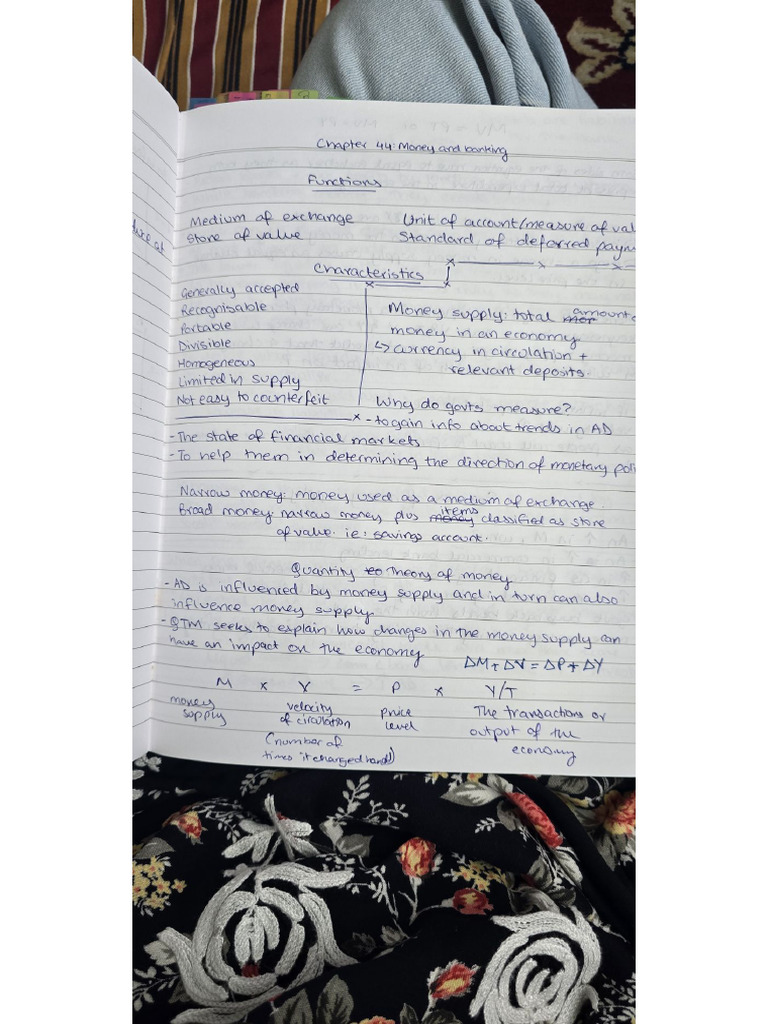 Chapter 44: Money and banking
Functions
Medium of exchange Unit of account/measure of val
Store of value Standard of deferred paym
Characteristics
Generally accepted
Recognisable
Portable
Divisible
Homogeneous
Limited in supply
Not easy to counterfeit
Money supply: total amount o
money in an economy
↳ currency in circulation +
relevant deposits.
Why do govts measure?
- to gain info about trends in AD
- The state of financial markets
- To help them in determining the direction of monetary poli
Narrow money: money used as a medium of exchange.
Broad money: narrow money plus items classified as store
of value. ie: savings account.
Quantity Theory of money
- AD is influenced by money supply and in turn can also
influence money supply.
- QTM seeks to explain how changes in the money supply can
have an impact on the economy
ΔM + ΔV = ΔP + ΔY
M x V = P x Y/T
money supply
velocity of circulation
(number of times it changed hands)
price level
The transactions or
output of the
economy